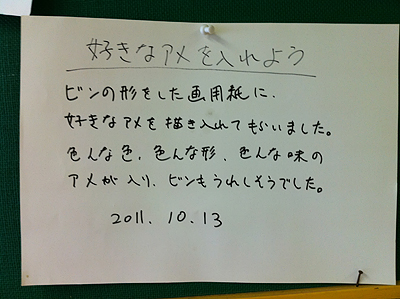 好きなアメを入れよう
ビンの形をした画用紙に、
好きなアメを描き入れてもらいました。
色んな色、色んな形、色んな味の
アメが入り、ビンもうれしそうでした。
2011. 10. 13